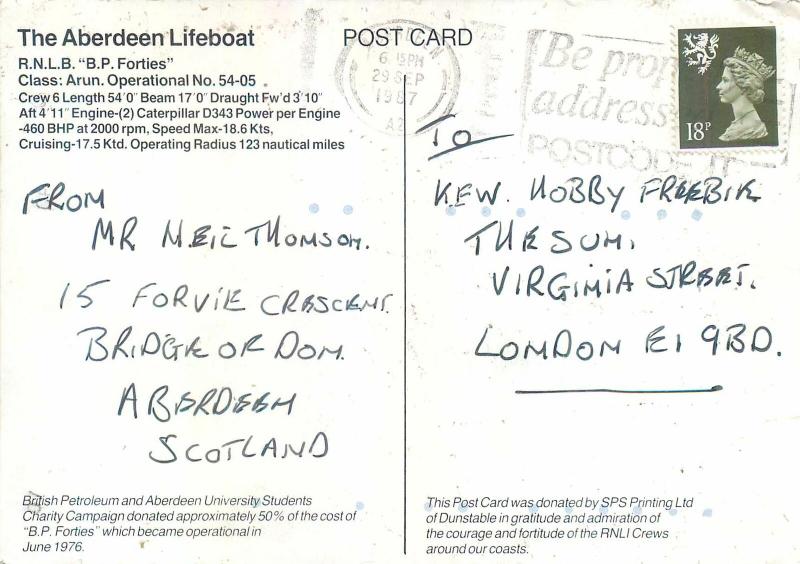 The Aberdeen Lifeboat
R.N.L.B. "B.P. Forties"
Class: Arun. Operational No. 54-05
Crew 6 Length 54'0" Beam 17'0" Draught Fw'd 3'10"
Aft 4'11" Engine-(2) Caterpillar D343 Power per Engine
-460 BHP at 2000 rpm, Speed Max-18.6 Kts,
Cruising-17.5 Ktd. Operating Radius 123 nautical miles
FROM
MR NEIL THOMSON.
15 FORVIE CRESCENT.
BRIDGE OF DON.
ABERDEEN
SCOTLAND
British Petroleum and Aberdeen University Students
Charity Campaign donated approximately 50% of the cost of
"B.P. Forties" which became operational in
June 1976.
POST CARD
6 15PM
29 SEP
1987
Be
address
POSTCODE IT
18P
TO
KEW. HOBBY FREEBIE
THE SUN,
VIRGINIA STREET.
LONDON E1 9BD.
This Post Card was donated by SPS Printing Ltd
of Dunstable in gratitude and admiration of
the courage and fortitude of the RNLI Crews
around our coasts.